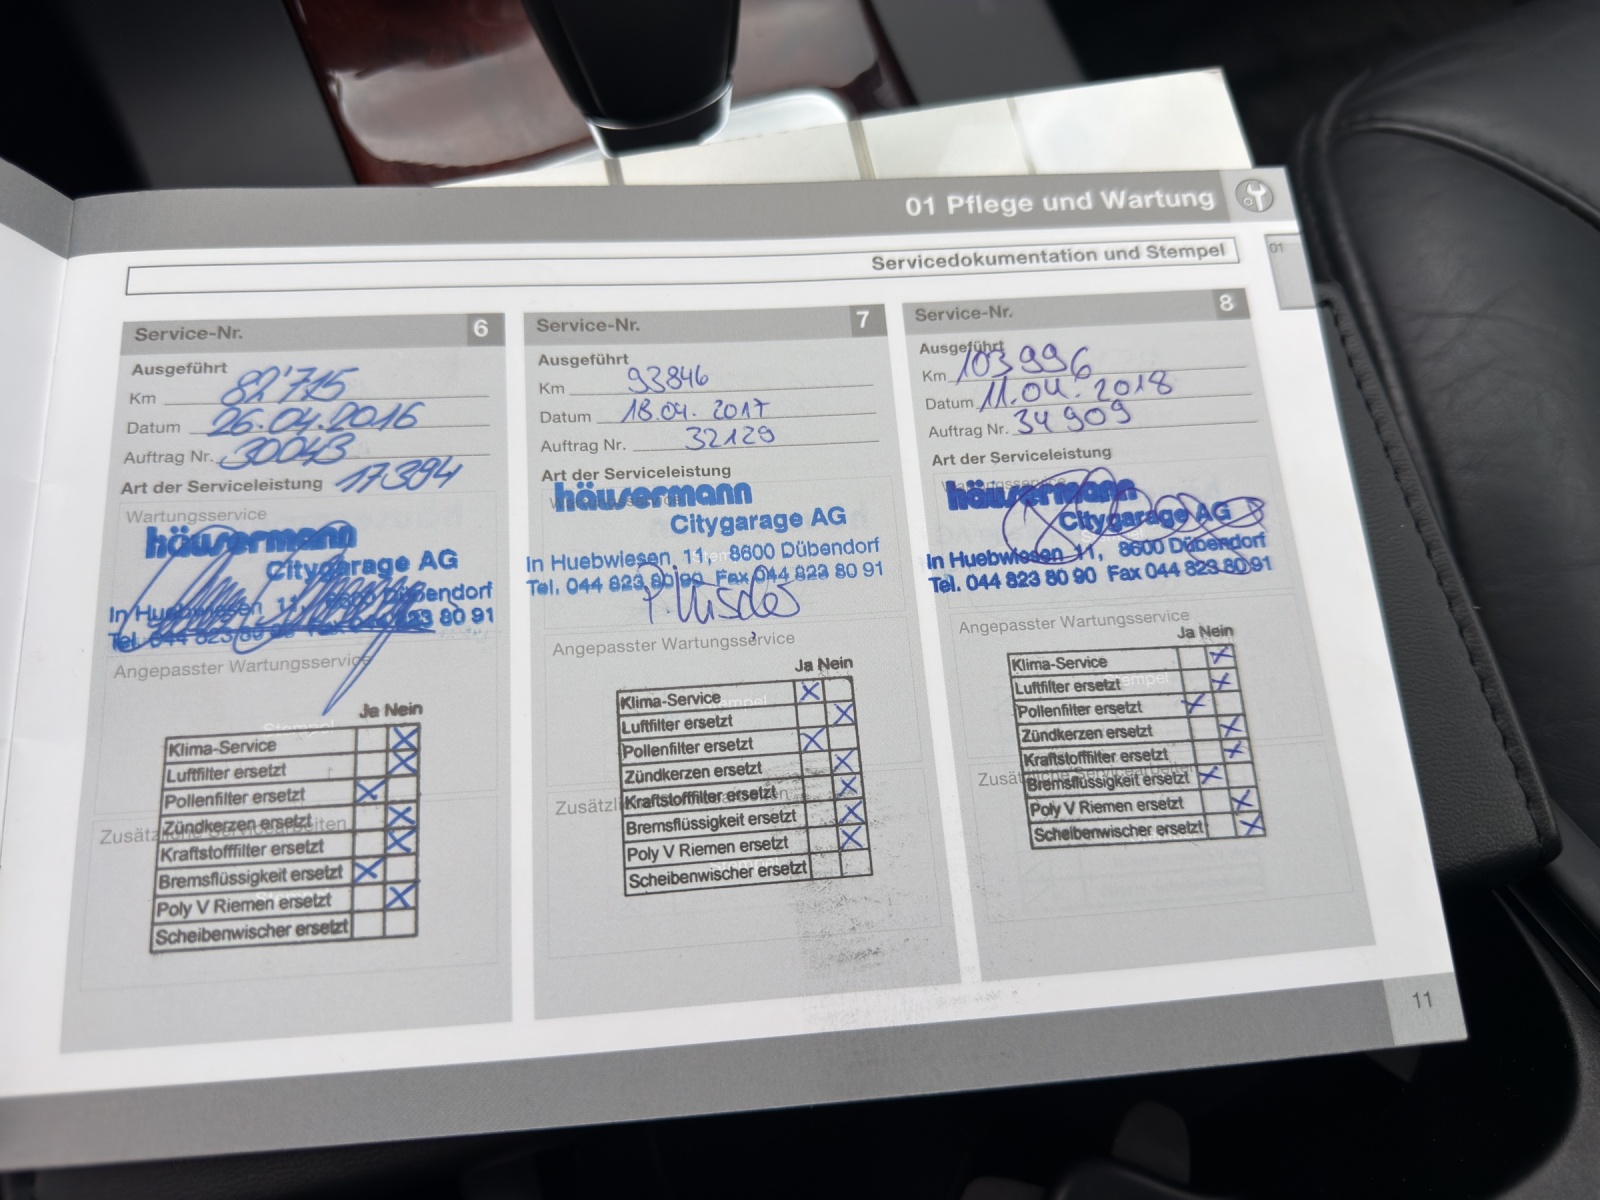 01 Pflege und Wartung
01
Servicedokumentation und Stempel
Service-Nr. 6
Ausgeführt
Km 82'715
Datum 26.04.2016
Auftrag Nr. 30043
Art der Serviceleistung 17394
Wartungsservice
häusermann
Citygarage AG
In Huebwiesen 11, 8600 Dübendorf
Tel. 044 823 80 90 Fax 044 823 80 91
Angepasster Wartungsservice
Stempel
Ja Nein
Klima-Service X
Luftfilter ersetzt X
Pollenfilter ersetzt X
Zündkerzen ersetzt X
Zusätzliche Servicearbeiten
Kraftstofffilter ersetzt X
Bremsflüssigkeit ersetzt X
Poly V Riemen ersetzt X
Stempel
Scheibenwischer ersetzt
Service-Nr. 7
Ausgeführt
Km 93846
Datum 18.04.2017
Auftrag Nr. 32129
Art der Serviceleistung
häusermann
Citygarage AG
In Huebwiesen 11, 8600 Dübendorf
Tel. 044 823 80 90 Fax 044 823 80 91
Angepasster Wartungsservice
Ja Nein
Klima-Service X
Stempel
Luftfilter ersetzt X
Pollenfilter ersetzt X
Zündkerzen ersetzt X
Kraftstofffilter ersetzt X
Bremsflüssigkeit ersetzt X
Poly V Riemen ersetzt X
Stempel
Scheibenwischer ersetzt
Service-Nr. 8
Ausgeführt
Km 103996
Datum 11.04.2018
Auftrag Nr. 34909
Art der Serviceleistung
Wartungsservice
häusermann
Citygarage AG
In Huebwiesen 11, 8600 Dübendorf
Tel. 044 823 80 90 Fax 044 823 80 91
Angepasster Wartungsservice
Ja Nein
Klima-Service X
Luftfilter ersetzt X
Stempel
Pollenfilter ersetzt X
Zündkerzen ersetzt X
Kraftstofffilter ersetzt X
Zusätzliche Servicearbeiten
Bremsflüssigkeit ersetzt X
Poly V Riemen ersetzt X
Scheibenwischer ersetzt X
11